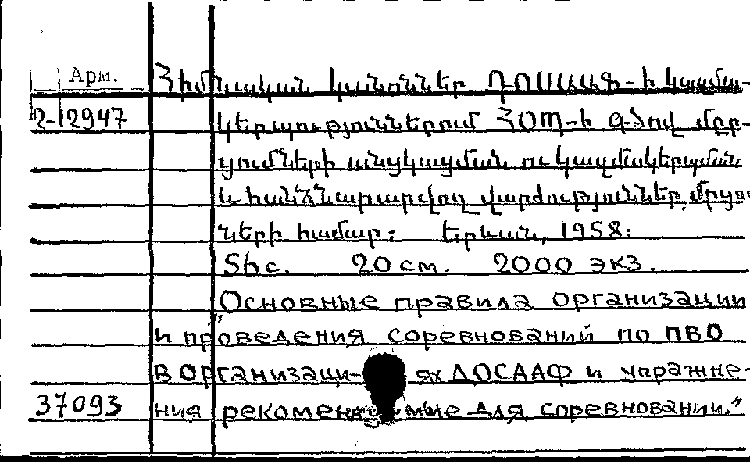 Арм.
Հիմնական կանոններ ԴՈՍԱԱՖ-ի կազմա-
2-12947
կերպություններում ՀՕՊ-ի գծով մրց-
ումների անցկացման ու կազմակերպման
և հանձնարարվող վարժություններ մրցու
ների համար: Երևան, 1958:
20 см. 2000 экз.
"Основные правила организации
и проведения соревнований по ПВО
в организаци- ях ДОСААФ и упражне-
37093
ния рекомендуемые для соревновании."